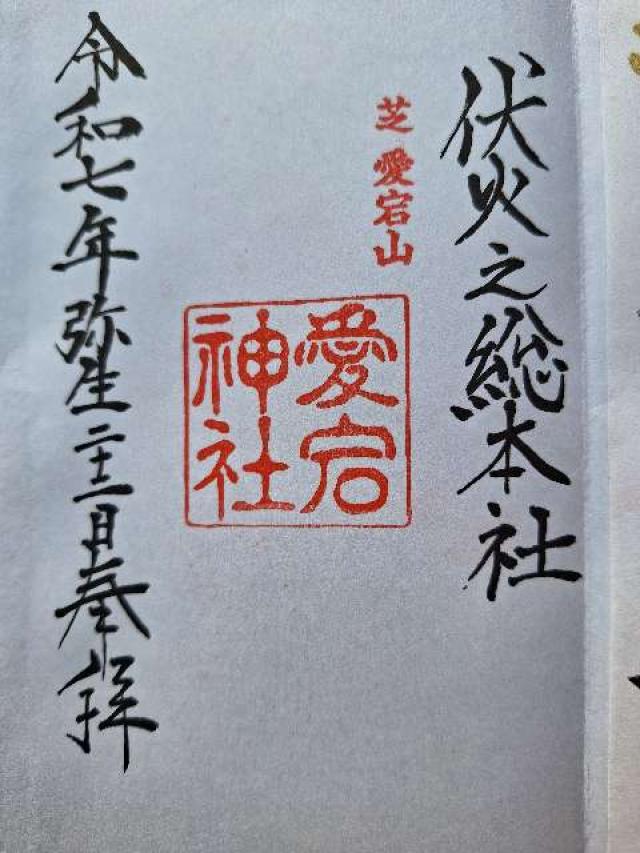 伏火之総本社
芝 愛宕山
愛宕
神社
令和七年弥生二十二日奉拝